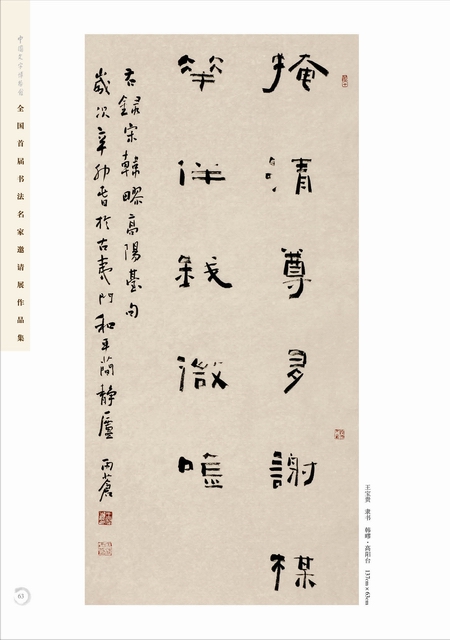 中国文字博物馆
全国首届书法名家邀请展作品集
掩清尊多謝楳
華伴我微唫
右録宋韓疁高陽臺句
歲次辛卯春於古夷門和平簡静廬 雨蒼
王宝贵 隶书 韩疁·高阳台 137cm×63cm
63